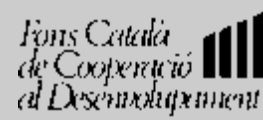 Fons Català
de Cooperació
al Desenvolupament